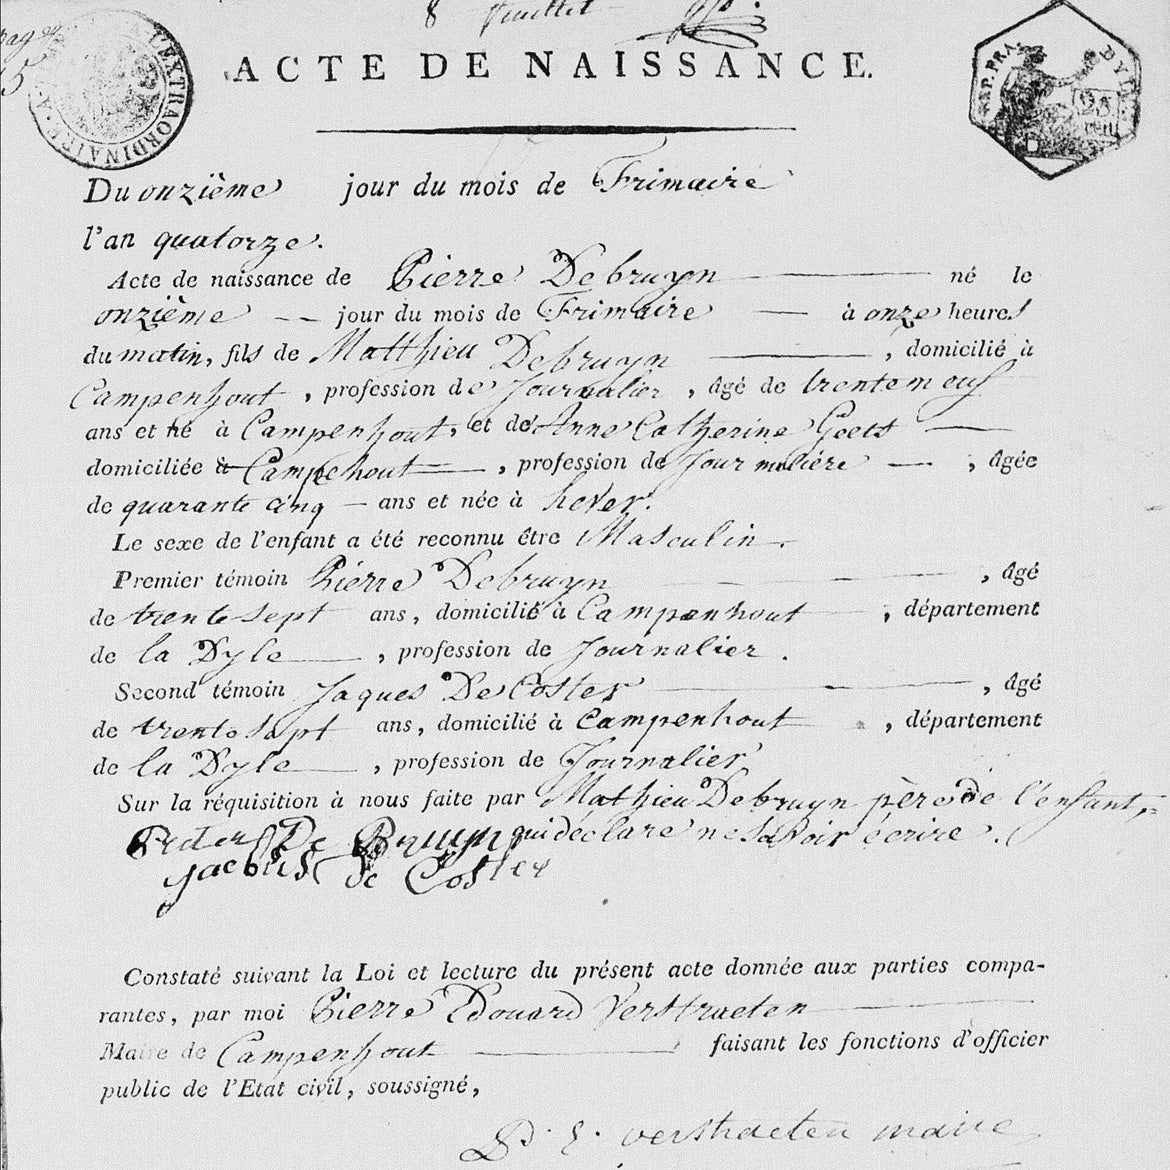 8 feuillet
pages
15
A L'EXTRAORDINAIRE
DEP. FRA DYLE
25
cen
ACTE DE NAISSANCE.
Du onzième jour du mois de Frimaire
l'an quatorze.
Acte de naissance de Pierre Debruyn né le
onzième jour du mois de Frimaire à onze heures
du matin, fils de Matthieu Debruyn, domicilié à
Campenhout, profession de Journalier, âgé de trente neuf
ans et né à Campenhout, et de Anne Catherine Geets
domiciliée à Campehout, profession de Journaliére, âgée
de quarante cinq ans et née à hever.
Le sexe de l'enfant a été reconnu être Masculin.
Premier témoin Pierre Debruyn, âgé
de trente sept ans, domicilié à Campenhout, département
de la Dyle, profession de Journalier.
Second témoin Jaques De Coster, âgé
de trente sept ans, domicilié à Campenhout, département
de la Dyle, profession de Journalier
Sur la réquisition à nous faite par Mathieu Debruyn père de l'enfant,
qui déclare ne savoir écrire.
Peeter De Bruyn
Jacobus De Coster
Constaté suivant la Loi et lecture du présent acte donnée aux parties compa-
rantes, par moi Pierre Edouard Verstraeten
Maire de Campenhout faisant les fonctions d'officier
public de l'Etat civil, soussigné,
P. E. verstraeten maire